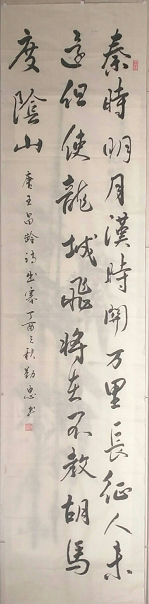 秦時明月漢時關万里長征人未
還但使龍城飛將在不教胡馬
度陰山
唐王昌龄詩出塞丁酉之秋勤忠书